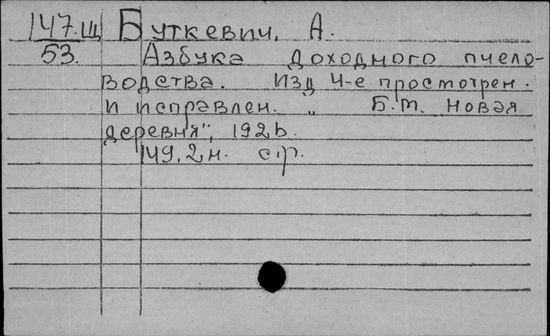 147.Щ Буткевич, А.
53. Азбука доходного пчело-
водства. Изд 4-е простотрен.
и исправлен. „ Б.м. новая
деревня", 1926.
149,2 н. стр.